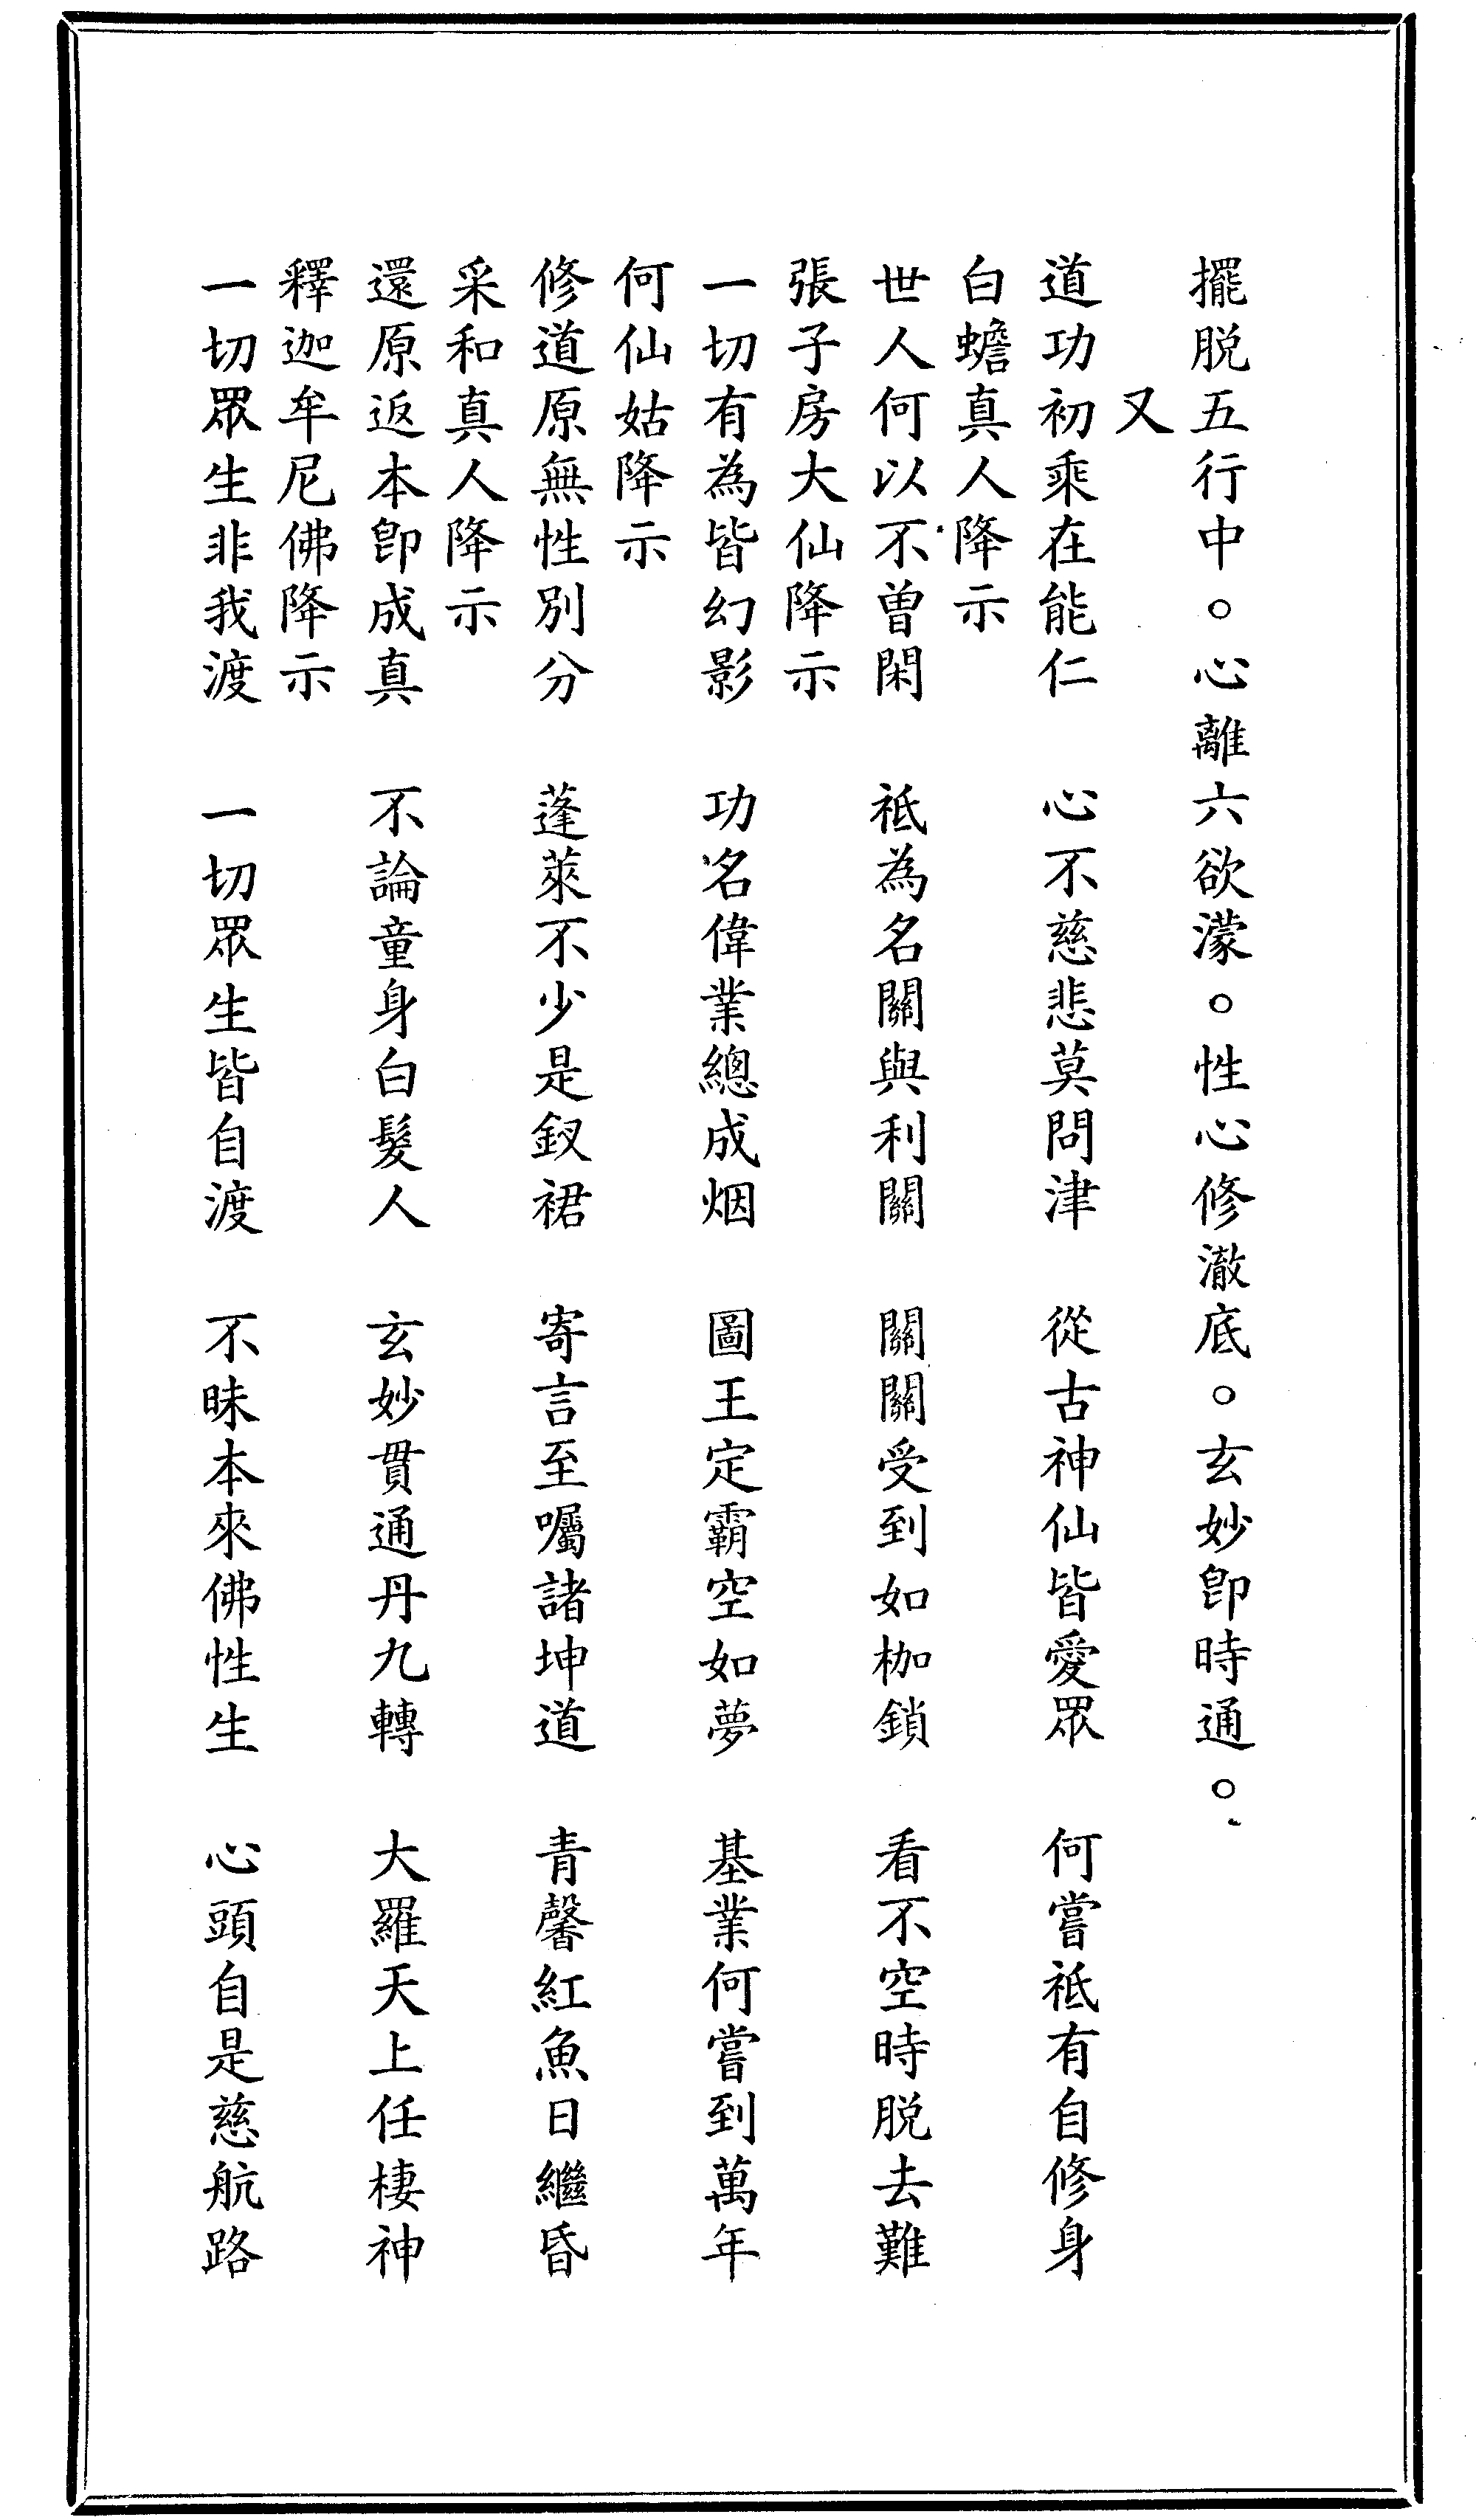 擺脱五行中。心離六欲濛。性心修澈底。玄妙即時通。
又
道功初乘在能仁　心不慈悲莫問津　從古神仙皆愛眾　何嘗祗有自修身
白蟾真人降示
世人何以不曾閑　祗為名關與利關　關關受到如枷鎖　看不空時脱去難
張子房大仙降示
一切有為皆幻影　功名偉業總成烟　圖王定霸空如夢　基業何嘗到萬年
何仙姑降示
修道原無性別分　蓬萊不少是釵裙　寄言至囑諸坤道　青馨紅魚日繼昏
采和真人降示
還原返本即成真　不論童身白髮人　玄妙貫通丹九轉　大羅天上任棲神
釋迦牟尼佛降示
一切眾生非我渡　一切眾生皆自渡　不昧本來佛性生　心頭自是慈航路